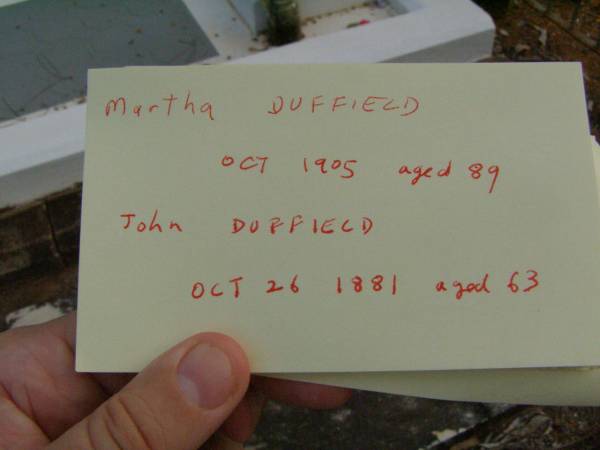 Martha DUFFIELD
OCT 1905 aged 89
John DUFFIELD
OCT 26 1881 aged 63